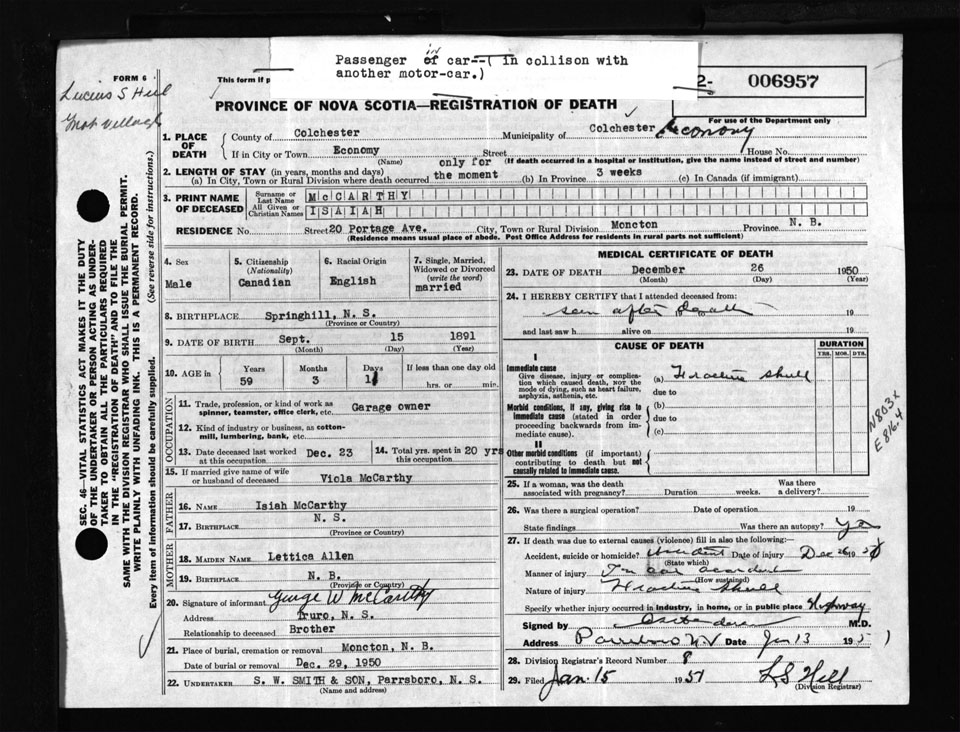 Passenger in car--( in collison with
another motor-car.)
FORM 6
This form if p
2- 006957
Lucius S Hill
PROVINCE OF NOVA SCOTIA—REGISTRATION OF DEATH
For use of the Department only
1. PLACE OF DEATH
County of Colchester Municipality of Colchester Economy
If in City or Town Economy Street House No.
(Name) (If death occurred in a hospital or institution, give the name instead of street and number)
2. LENGTH OF STAY (in years, months and days)
(a) In City, Town or Rural Division where death occurred only for the moment (b) In Province 3 weeks (c) In Canada (if immigrant)
3. PRINT NAME OF DECEASED
Surname or Last Name McCARTHY
All Given or Christian Names ISAIAH
RESIDENCE No. Street 20 Portage Ave. City, Town or Rural Division Moncton Province N. B.
(Residence means usual place of abode. Post Office Address for residents in rural parts not sufficient)
4. Sex
Male
5. Citizenship
(Nationality)
Canadian
6. Racial Origin
English
7. Single, Married,
Widowed or Divorced
(write the word)
married
8. BIRTHPLACE Springhill, N. S.
(Province or Country)
9. DATE OF BIRTH Sept. 15 1891
(Month) (Day) (Year)
10. AGE in
Years Months Days If less than one day old
59 3 11 hrs. or min.
OCCUPATION
11. Trade, profession, or kind of work as
spinner, teamster, office clerk, etc. Garage owner
12. Kind of industry or business, as cotton-
mill, lumbering, bank, etc.
13. Date deceased last worked
at this occupation Dec. 23
14. Total yrs. spent in
this occupation 20 yrs
15. If married give name of wife
or husband of deceased Viola McCarthy
FATHER
16. Name Isiah McCarthy
17. Birthplace N. S.
MOTHER
18. Maiden Name Lettica Allen
19. Birthplace N. B.
(Province or Country)
20. Signature of informant George W McCarthy
Address Truro, N. S.
Relationship to deceased Brother
21. Place of burial, cremation or removal Moncton, N. B.
Date of burial or removal Dec. 29, 1950
22. UNDERTAKER S. W. SMITH & SON, Parrsboro, N. S.
(Name and address)
MEDICAL CERTIFICATE OF DEATH
23. DATE OF DEATH December 26 1950
(Month) (Day) (Year)
24. I HEREBY CERTIFY that I attended deceased from:
seen after death 19
and last saw h alive on 19
CAUSE OF DEATH
DURATION
YRS. MOS. DYS.
I
Immediate cause
Give disease, injury or complica-
tion which caused death, NOT the
mode of dying, such as heart failure,
asphyxia, asthenia, etc.
(a) Fracture Skull
due to
Morbid conditions, if any, giving rise to
immediate cause (stated in order
proceeding backwards from im-
mediate cause).
(b)
due to
(c)
II
Other morbid conditions (if important)
contributing to death but not
causally related to immediate cause.
N803X
E816.4
25. If a woman, was the death
associated with pregnancy? Duration weeks. Was there
a delivery?
26. Was there a surgical operation? Date of operation 19
State findings Was there an autopsy? Yes
27. If death was due to external causes (violence) fill in also the following:
Accident, suicide or homicide? Accident Date of injury Dec 26 1950
(State which)
Manner of injury In car accident
(How sustained)
Nature of injury Fracture Skull
Specify whether injury occurred in industry, in home, or in public place Highway
Signed by M.D.
Address Parrsboro N S Date Jan 13 1951
28. Division Registrar's Record Number 8
29. Filed Jan. 15 1951 L S Hill
(Division Registrar)
SEC. 46—VITAL STATISTICS ACT MAKES IT THE DUTY
OF THE UNDERTAKER OR PERSON ACTING AS UNDER-
TAKER TO OBTAIN ALL THE PARTICULARS REQUIRED
IN THE "REGISTRATION OF DEATH" AND TO FILE THE
SAME WITH THE DIVISION REGISTRAR WHO SHALL ISSUE THE BURIAL PERMIT.
WRITE PLAINLY WITH UNFADING INK. THIS IS A PERMANENT RECORD.
Every item of information should be carefully supplied. (See reverse side for instructions.)